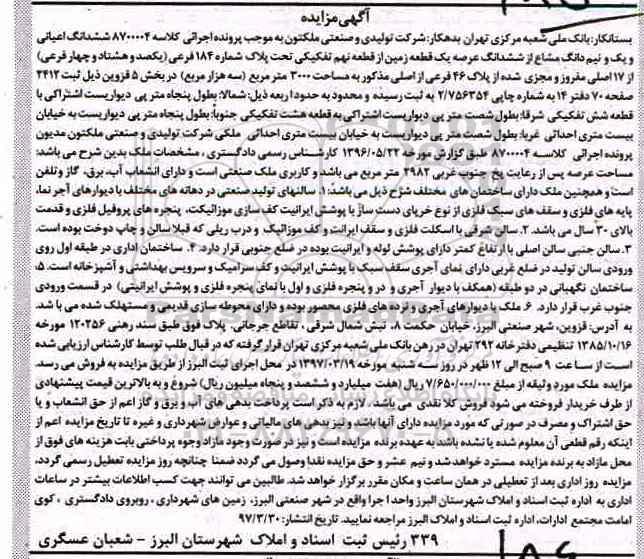 آگهی مزایده
بستانکار: بانک ملی شعبه مرکزی تهران بدهکار: شرکت تولیدی و صنعتی ملکتون به موجب پرونده اجرائی کلاسه ۸۷۰۰۰۰۴ ششدانگ اعیانی
و یک و نیم دانگ مشاع از ششدانگ عرصه یک قطعه زمین از قطعه نهم تفکیکی تحت پلاک شماره ۱۸۴ فرعی (یکصد و هشتاد و چهار فرعی)
از ۱۷ اصلی مفروز و مجزی شده از پلاک ۴۶ فرعی از اصلی مذکور به مساحت ۳۰۰۰ متر مربع (سه هزار مربع) در بخش ۵ قزوین ذیل ثبت ۲۴۱۲
صفحه ۷۰ دفتر ۱۴ به شماره چاپی ۲/۷۵۶۳۵۴ به ثبت رسیده و محدود به حدود اربعه ذیل: شمالا: بطول پنجاه متر پی دیواریست اشتراکی با
قطعه شش تفکیکی شرقا: بطول شصت متر پی دیواریست اشتراکی به قطعه هشت تفکیکی جنوبا: بطول پنجاه متر پی دیواریست به خیابان
بیست متری احداثی غربا: بطول شصت متر پی دیواریست به خیابان بیست متری احداثی ملکی شرکت تولیدی و صنعتی ملکتون مدیون
پرونده اجرائی کلاسه ۸۷۰۰۰۰۴ طبق گزارش مورخه ۱۳۹۶/۰۵/۲۲ کارشناس رسمی دادگستری ، مشخصات ملک بدین شرح می باشد:
مساحت عرصه پس از رعایت پخ جنوب غربی ۲۹۸۲ متر مربع می باشد و کاربری ملک صنعتی است و دارای انشعاب آب، برق، گاز و تلفن
است و همچنین ملک دارای ساختمان های مختلف شرح ذیل می باشد: ۱. سالنهای تولید صنعتی در دهانه های مختلف با دیوارهای آجر نما،
پایه های فلزی و سقف های سبک فلزی از نوع خرپای دست ساز با پوشش ایرانیت کف سازی موزائیکت، پنجره های پروفیل فلزی و قدمت
بالای ۳۰ سال می باشد. ۲. سالن شرقی با اسکلت فلزی و سقف ایرانت و کف موزائیک و درب ریلی که قبلا سالن و چاپ دوخت بوده است.
۳. سالن جنبی سالن اصلی با ارتفاع کمتر دارای پوشش لوله و ایرانیت بوده در ضلع جنوبی قرار دارد. ۴. ساختمان اداری در طبقه اول روی
ورودی سالن تولید در ضلع غربی دارای نمای آجری سقف سبک با پوشش ایرانیت و کف سرامیک و سرویس بهداشتی و آشپزخانه است. ۵.
ساختمان نگهبانی در دو طبقه (همکف با دیوار آجری و در و پنجره فلزی و اول با نمای پنجره فلزی و پوشش ایرانیتی) در قسمت ورودی
جنوب غرب قرار دارد. ۶. ملک با دیوارهای آجری و نرده های فلزی محصور بوده و دارای محوطه سازی قدیمی و مستهلک شده می با شد.
به آدرس: قزوین، شهر صنعتی البرز، خیابان حکمت ۸، نبش شمال شرقی ، تقاطع جرجانی. پلاک فوق طبق سند رهنی ۱۲۰۲۵۶ مورخه
۱۳۸۵/۱۰/۱۶ تنظیمی دفترخانه ۲۹۲ تهران در رهن بانک ملی شعبه مرکزی تهران قرار گرفته که در قبال طلب توسط کارشناس ارزیابی شده
است از ساعت ۹ صبح الی ۱۲ ظهر در روز سه شنبه مورخه ۱۳۹۷/۰۴/۱۹ در محل اجرای ثبت البرز از طریق مزایده به فروش می رسد.
مزایده ملک مورد وثیقه از مبلغ ۷/۶۵۰/۰۰۰/۰۰۰ ریال (هفت میلیارد و ششصد و پنجاه میلیون ریال) شروع و به بالاترین قیمت پیشنهادی
از طرف خریدار فروخته می شود فروش کلا نقدی می باشد . لازم به ذکر است پرداخت بدهی های آب و برق و گاز اعم از حق انشعاب و یا
حق اشتراک و مصرف در صورتی که مورد مزایده دارای آنها باشد و نیز بدهی های مالیاتی و عوارض شهرداری و غیره تا تاریخ مزایده اعم از
اینکه رقم قطعی آن معلوم شده یا نشده باشد به عهده برنده مزایده است و نیز در صورت وجود مازاد وجوه پرداختی بابت هزینه های فوق از
محل مازاد به برنده مزایده مسترد خواهد شد و نیم عشر و حق مزایده نقدا وصول می گردد ضمنا چنانچه روز مزایده تعطیل رسمی گردد،
مزایده روز اداری بعد از تعطیلی در همان ساعت و مکان مقرر برگزار خواهد شد. طالبین می توانند جهت کسب اطلاعات بیشتر در ساعات
اداری به اداره ثبت اسناد و املاک شهرستان البرز واحد اجرا واقع در شهر صنعتی البرز، زمین های شهرداری ، روبروی دادگستری ، کوی
امامت مجتمع ادارات، اداره ثبت اسناد و املاک البرز مراجعه نمایند. تاریخ انتشار: ۹۷/۳/۳۰
۳۳۹ رئیس ثبت اسناد و املاک شهرستان البرز – شعبان عسگری